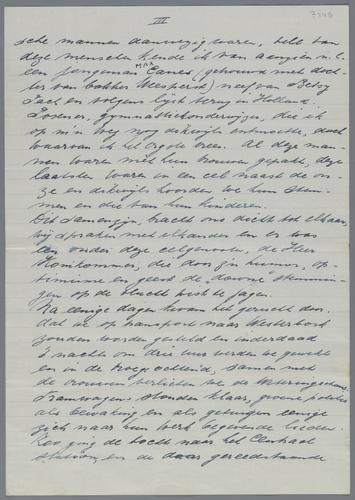 III
7346
sche mannen aanwezig waren, telt van
deze menschen kende ik van aanzien n.l.
een jongeman Max Canes (gehuwd met doch-
ter van bakker Weyschrift) neef van Betsy
Sack en volgens lijst terug in Holland.
gymnastiekonderwijzer, die ik
op m'n weg nog dikwijls ontmoette, doch
waarvan ik het ergste vrees. Al deze man-
nen waren met hun vrouwen gepakt, deze
laatsten waren in een cel naast de on-
ze en dikwijls hoorden we hun stem-
men en die van hun kinderen.
Dit samenzijn, bracht ons dicht tot elkaar,
wij spraken met elkander en er was
een onder deze celgenooten, de Heer
Komkommer, die door z'n humor, op-
timisme en geest de "donkere" stemmin-
gen op de vlucht wist te jagen.
Na eenige dagen kwam het gerucht door,
dat we op transport naar Westerbork
zouden worden gesteld en inderdaad
's nachts om drie uur werden we gewekt
en in de vroege ochtend, samen met
de vrouwen verlieten we de Weteringschans.
Tramwagens stonden klaar, groene politie
als bewaking en als getuigen eenige
zich naar hun werk begevende lieden.
Zoo ging de tocht naar het Centraal
station, en de daar gereedstaande